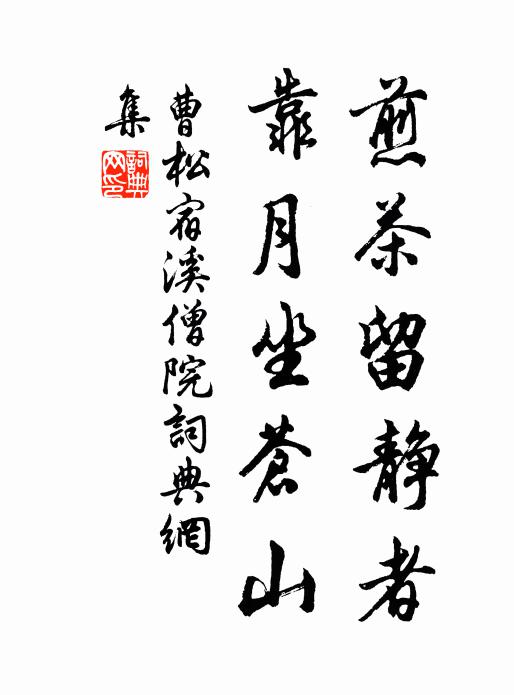 煎茶留静者
靠月坐蒼山
曹松宿溪僧院詞典網
集
詞典
网印